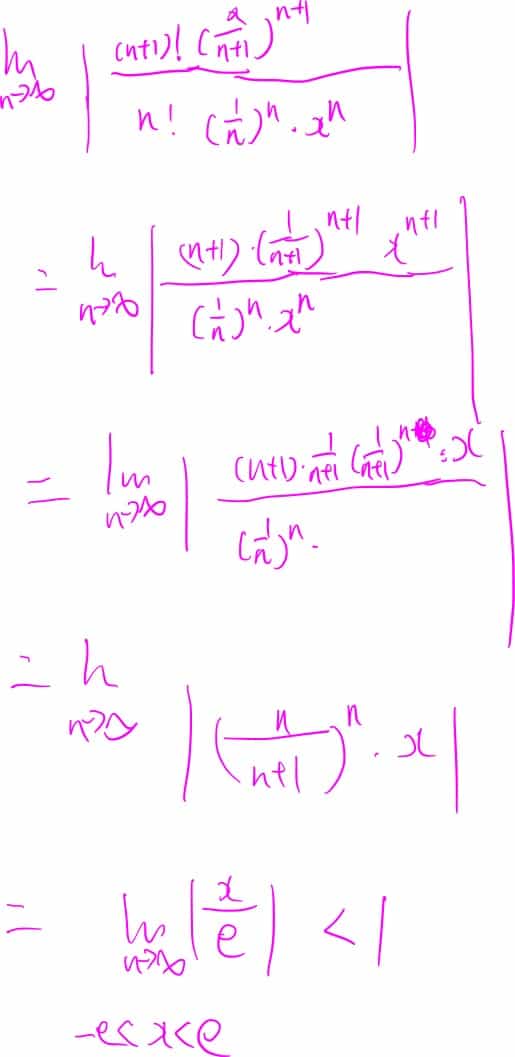 lim n→∞ | (n+1)! (x/(n+1))^(n+1) / n! (1/n)^n · x^n |
= lim n→∞ | (n+1) · (1/(n+1))^(n+1) x^(n+1) / (1/n)^n · x^n |
= lim n→∞ | (n+1) · 1/(n+1) (1/(n+1))^n · x / (1/n)^n · |
= lim n→∞ | (n/(n+1))^n · x |
= lim n→∞ | x/e | < 1
-e < x < e